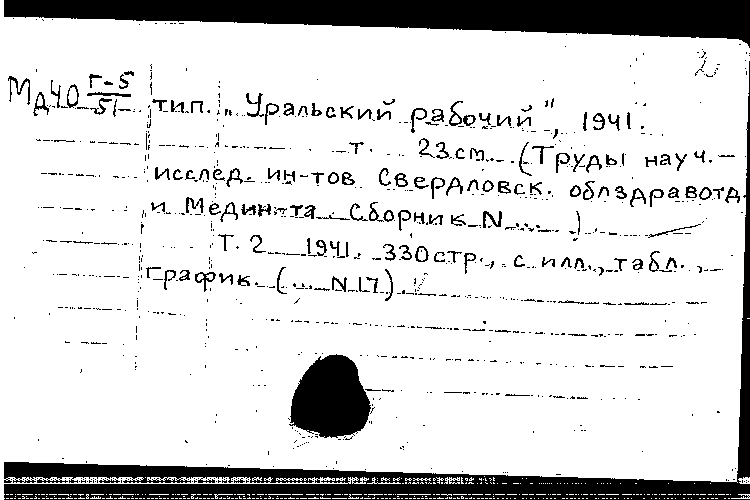 2
Мд40 Г-5/51 тип. „Уральский рабочий", 1941.
т. 23см. (Труды науч.-
исслед. ин-тов Свердловск. облздравотд.
и Мединта. Сборник N ... )
Т. 2 1941. 330стр., с илл., табл.,
график. (... N 17).